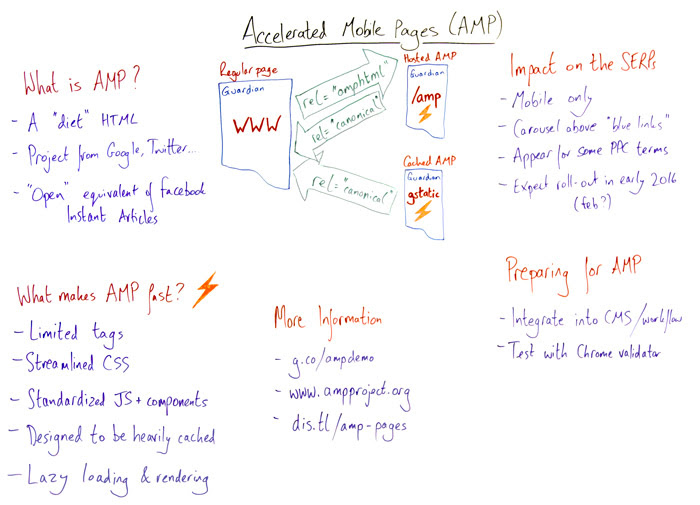 Accelerated Mobile Pages (AMP)
What is AMP?
- A "diet" HTML
- Project from Google, Twitter...
- "Open" equivalent of Facebook
Instant Articles
Regular page
Guardian
WWW
rel="amphtml"
rel="canonical"
rel="canonical"
Hosted AMP
Guardian
/amp
Cached AMP
Guardian
gstatic
Impact on the SERPs
- Mobile only
- Carousel above "blue links"
- Appear for some PPC terms
- Expect roll-out in early 2016
(feb?)
What makes AMP fast?
- Limited tags
- Streamlined CSS
- Standardized JS + components
- Designed to be heavily cached
- Lazy loading & rendering
More Information
- g.co/ampdemo
- www.ampproject.org
- dis.tl/amp-pages
Preparing for AMP
- Integrate into CMS/workflow
- Test with Chrome validator